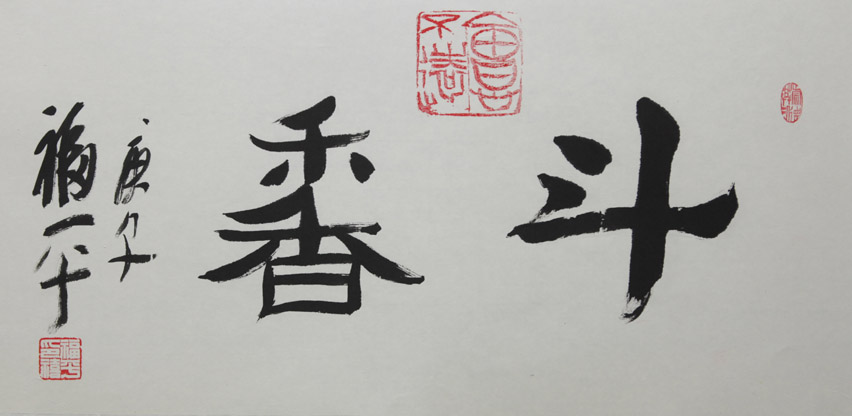 斗香
庚子
福平